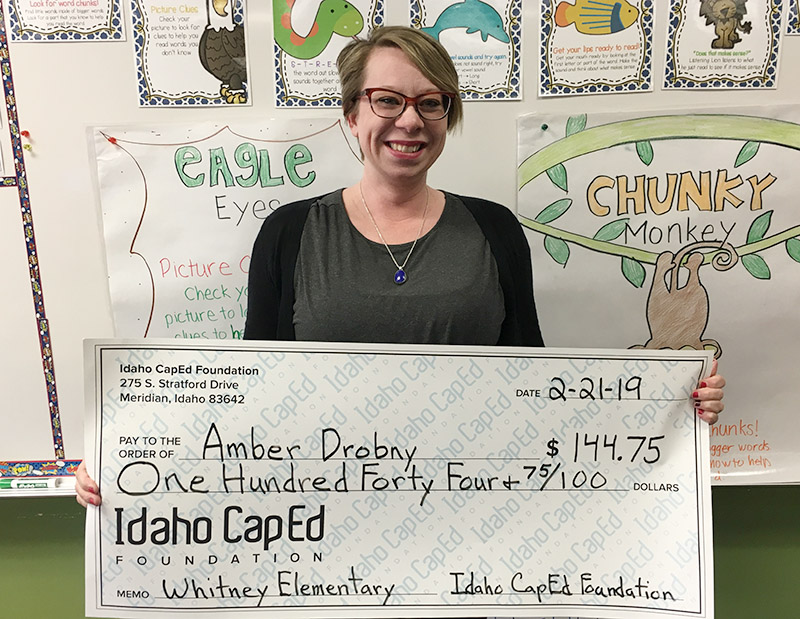 Look for word chunks!
Picture Clues
Check your picture to look for clues to help you read words you don't know
S-T-R-E-
the word out slow
sounds together
Get your lips ready to read!
Does that make sense?
EAGLE
Eyes
Picture
Check
picture to
clues to
CHUNKY
Monkey
chunks!
words
how to help
Idaho CapEd Foundation
275 S. Stratford Drive
Meridian, Idaho 83642
DATE 2-21-19
PAY TO THE
ORDER OF Amber Drobny $ 144.75
One Hundred Forty Four & 75/100 DOLLARS
Idaho CapEd
FOUNDATION
MEMO Whitney Elementary Idaho CapEd Foundation